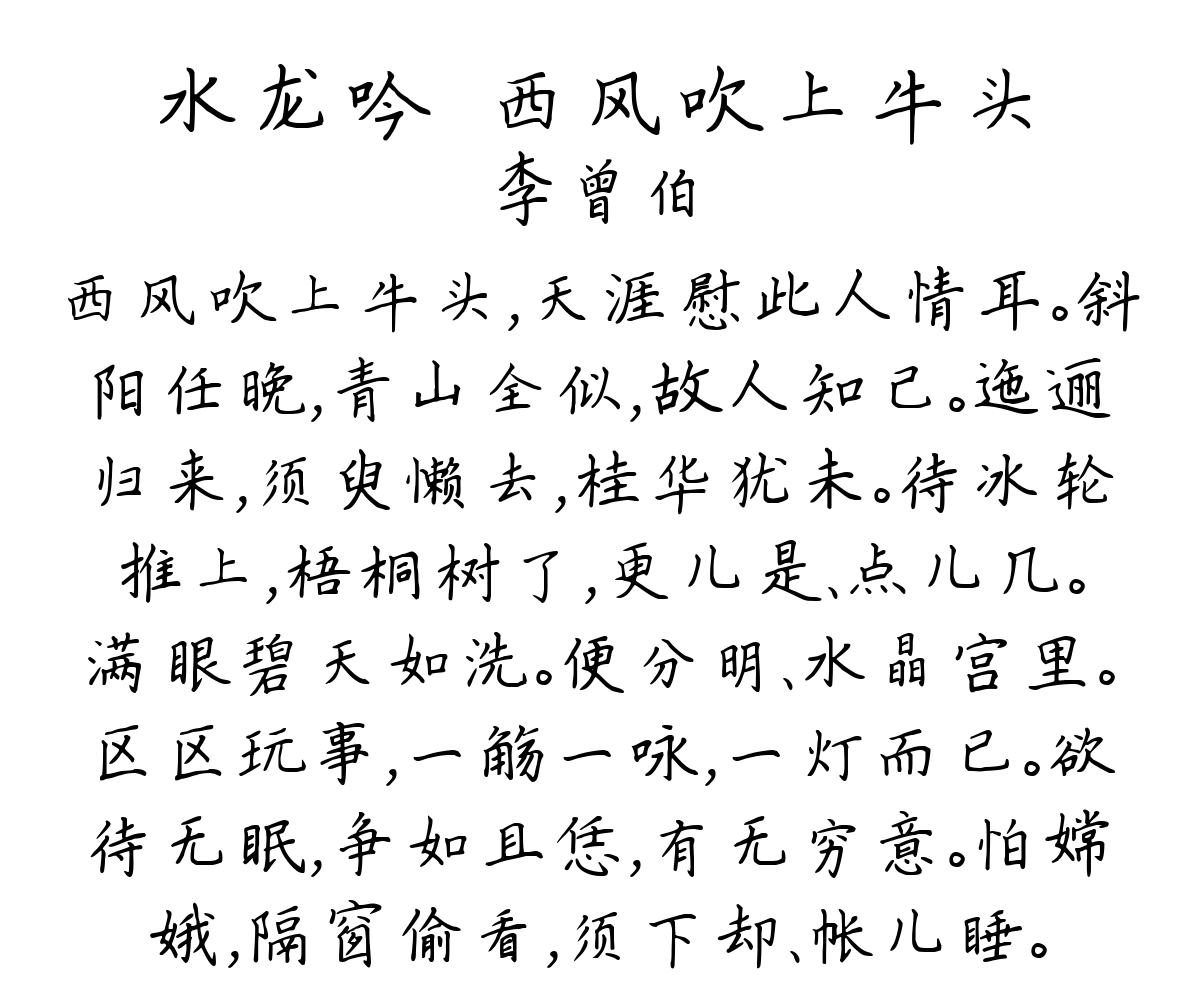 水龙吟 西风吹上牛头
李曾伯
西风吹上牛头,天涯慰此人情耳。斜
阳任晚,青山全似,故人知己。迤逦
归来,须臾懒去,桂华犹未。待冰轮
推上,梧桐树了,更儿是、点儿几。
满眼碧天如洗。便分明、水晶宫里。
区区玩事,一觞一咏,一灯而已。欲
待无眠,争如且恁,有无穷意。怕嫦
娥,隔窗偷看,须下却、帐儿睡。